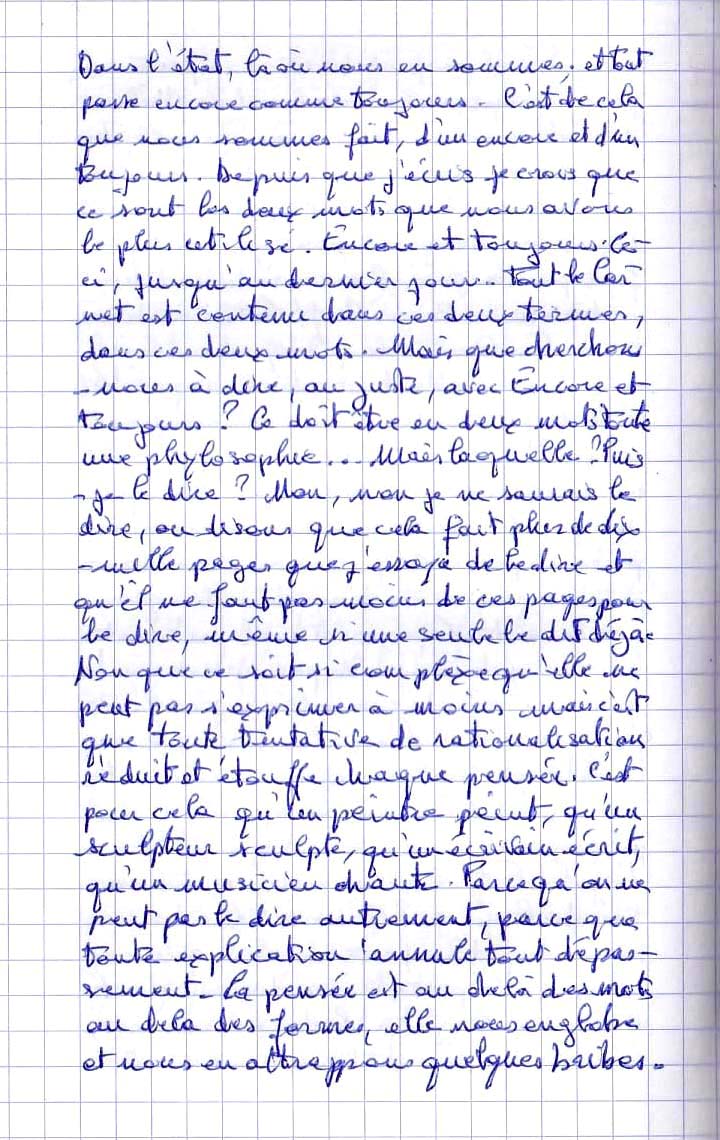 Dans l'état, là où nous en sommes, et tout
passe encore comme toujours. C'est de cela
que nous sommes fait, d'un encore et d'un
toujours. Depuis que j'écris je crois que
ce sont les deux mots que nous avons
le plus utilisé. Encore et toujours ce-
ci, jusqu'au dernier jour. Tout le Car-
net est contenu dans ces deux termes,
dans ces deux mots. Mais que cherchons
-nous à dire, au juste, avec Encore et
toujours ? Ce doit être en deux mots toute
une phylosophie... Mais laquelle ? Puis
-je le dire ? Non, non je ne saurais le
dire, ou disons que cela fait plus de dix
-mille pages que j'essaye de le dire et
qu'il ne faut pas moins de ces pages pour
le dire, même si une seule le dit déjà.
Non que ce soit si complexe qu'elle ne
peut pas s'exprimer à moins mais c'est
que toute tentative de rationalisation
réduit et étouffe chaque pensée. C'est
pour cela qu'un peintre peint, qu'un
sculpteur sculpte, qu'un écrivain écrit,
qu'un musicien chante. Parce qu'on ne
peut pas le dire autrement, parce que
toute explication annule tout dépas-
sement. La pensée est au delà des mots
au dela des formes, elle nous englobe
et nous en attrappons quelques bribes.